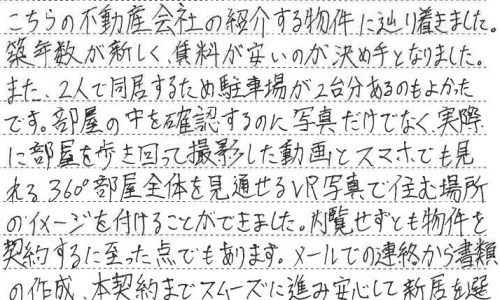 こちらの不動産会社の紹介する物件に辿り着きました。
築年数が新しく、賃料が安いのが決め手となりました。
また、2人で同居するため駐車場が2台分あるのもよかった
です。部屋の中を確認するのに写真だけでなく、実際
に部屋を歩き回って撮影した動画とスマホでも見
れる360°部屋全体を見通せるVR写真で住む場所
のイメージを付けることができました。内覧せずとも物件を
契約するに至った点でもあります。メールでの連絡から書類
の作成、本契約までスムーズに進み安心して新居を選